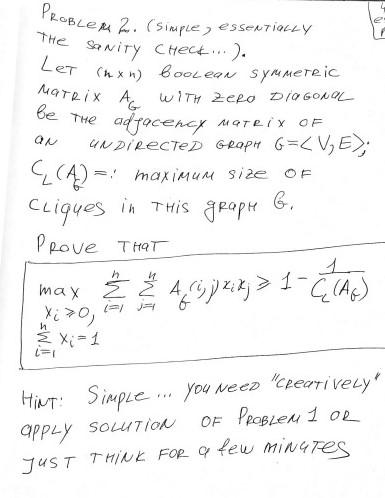 PROBLEM 2. (SIMPLE, ESSENTIALLY
THE SANITY CHECK...).
LET (n×n) BOOLEAN SYMMETRIC
MATRIX A_G WITH ZERO DIAGONAL
BE THE adjacency MATRIX OF
AN UNDIRECTED GRAPH G=<V,E>;
CL(A_G) =: MAXIMUM SIZE OF
CLIQUES IN THIS GRAPH G.
PROVE THAT
max_{x_i ≥ 0, \sum_{i=1}^{n} x_i = 1} \sum_{i=1}^{n} \sum_{j=1}^{n} A_G(i,j) x_i x_j ≥ 1 - \frac{1}{CL(A_G)}
HINT: SIMPLE... YOU NEED "CREATIVELY"
APPLY SOLUTION OF PROBLEM 1 OR
JUST THINK FOR A FEW MINUTES